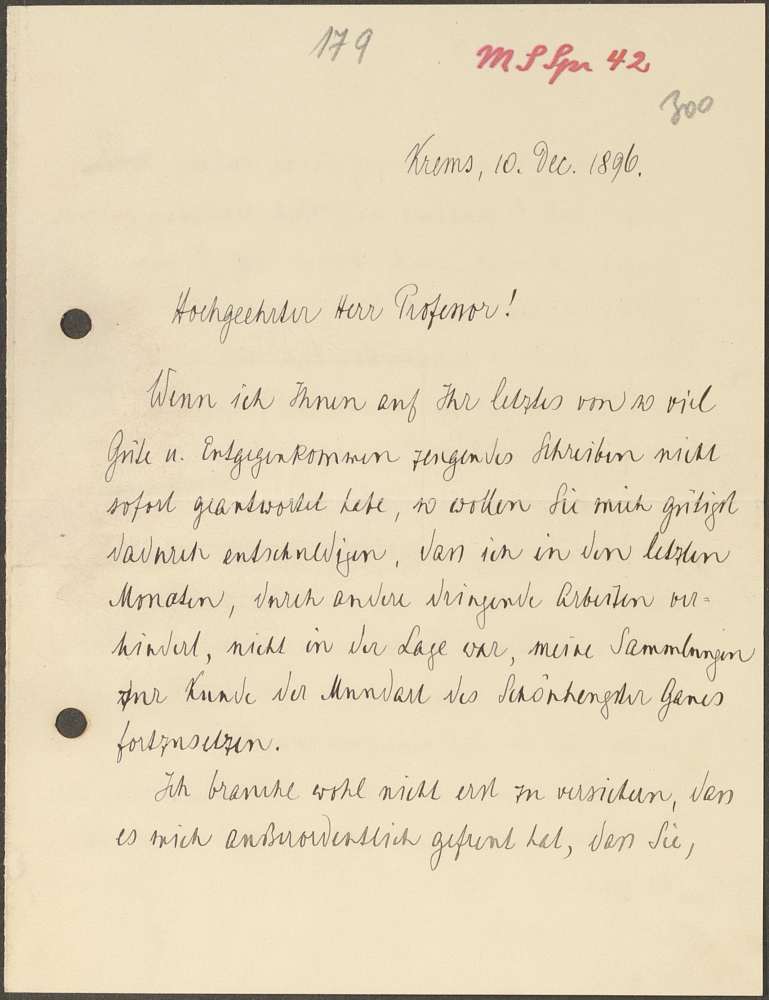 179
M S Spr 42
300
Krems, 10. Dec. 1896.
Hochgeehrter Herr Professor!
Wenn ich Ihnen auf Ihr letztes von so viel
Güte u. Entgegenkommen zeugendes Schreiben nicht
sofort geantwortet habe, so wollen Sie mich gütigst
dadurch entschuldigen, dass ich in den letzten
Monaten, durch andere dringende Arbeiten ver=
hindert, nicht in der Lage war, meine Sammlungen
zur Kunde der Mundart des Schönhengster Gaues
fortzusetzen.
Ich brauche wohl nicht erst zu versichern, dass
es mich außerordentlich gefreut hat, dass Sie,